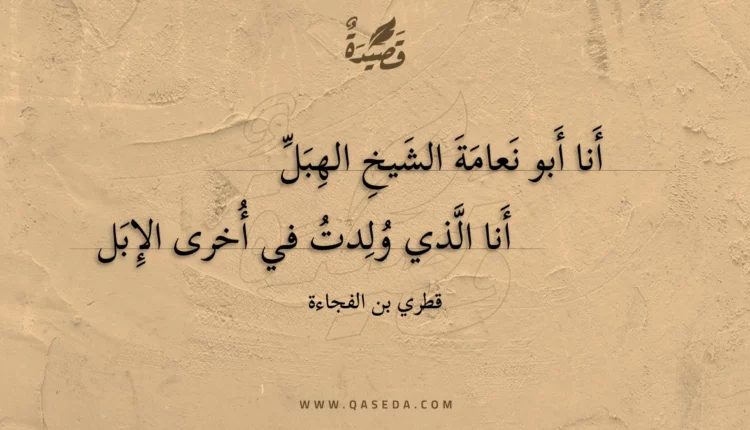 قَصِيدَةٌ
أَنا أَبو نَعامَةَ الشَيخِ الهِبَلِّ
أَنا الَّذي وُلِدتُ في أُخرى الإِبَل
قطري بن الفجاءة
WWW.QASEDA.COM